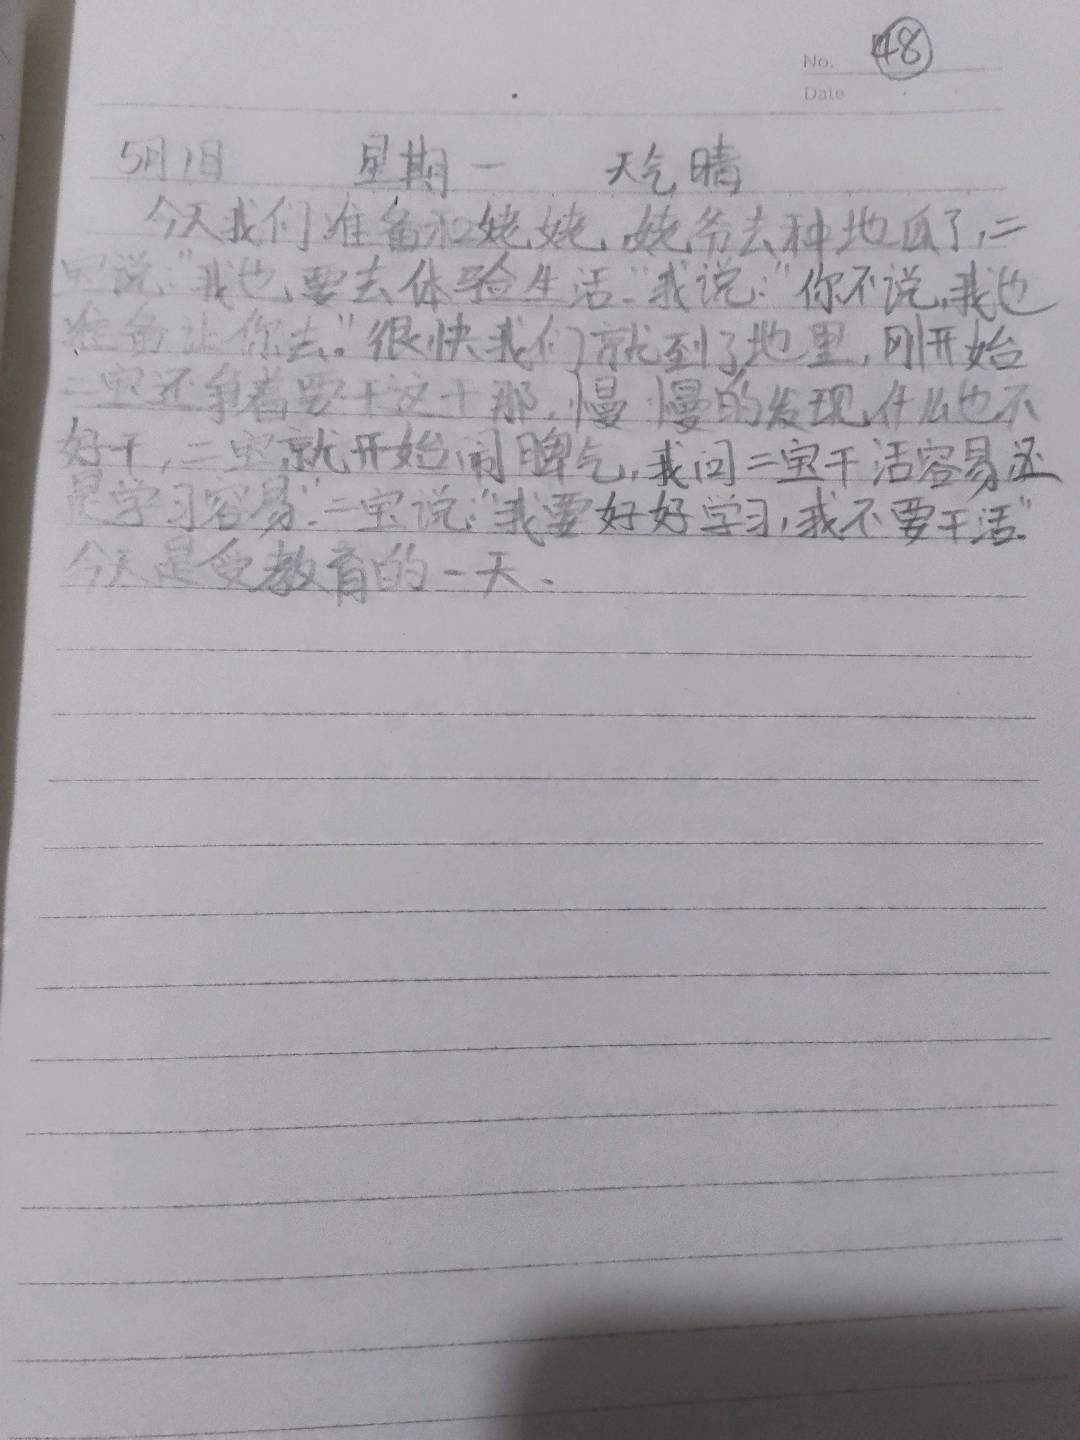 No. 48
Date
5月1日 星期一 天气晴
今天我们准备和姥姥、姥爷去种地瓜了,二
宝说:"我也要去体验生活."我说:"你不说,我也
准备让你去."很快我们就到了地里,刚开始
二宝还争着要干这干那,慢慢的发现什么也不
好干,二宝就开始闹脾气,我问二宝干活容易还
是学习容易."二宝说:"我要好好学习,我不要干活."
今天是受教育的一天.